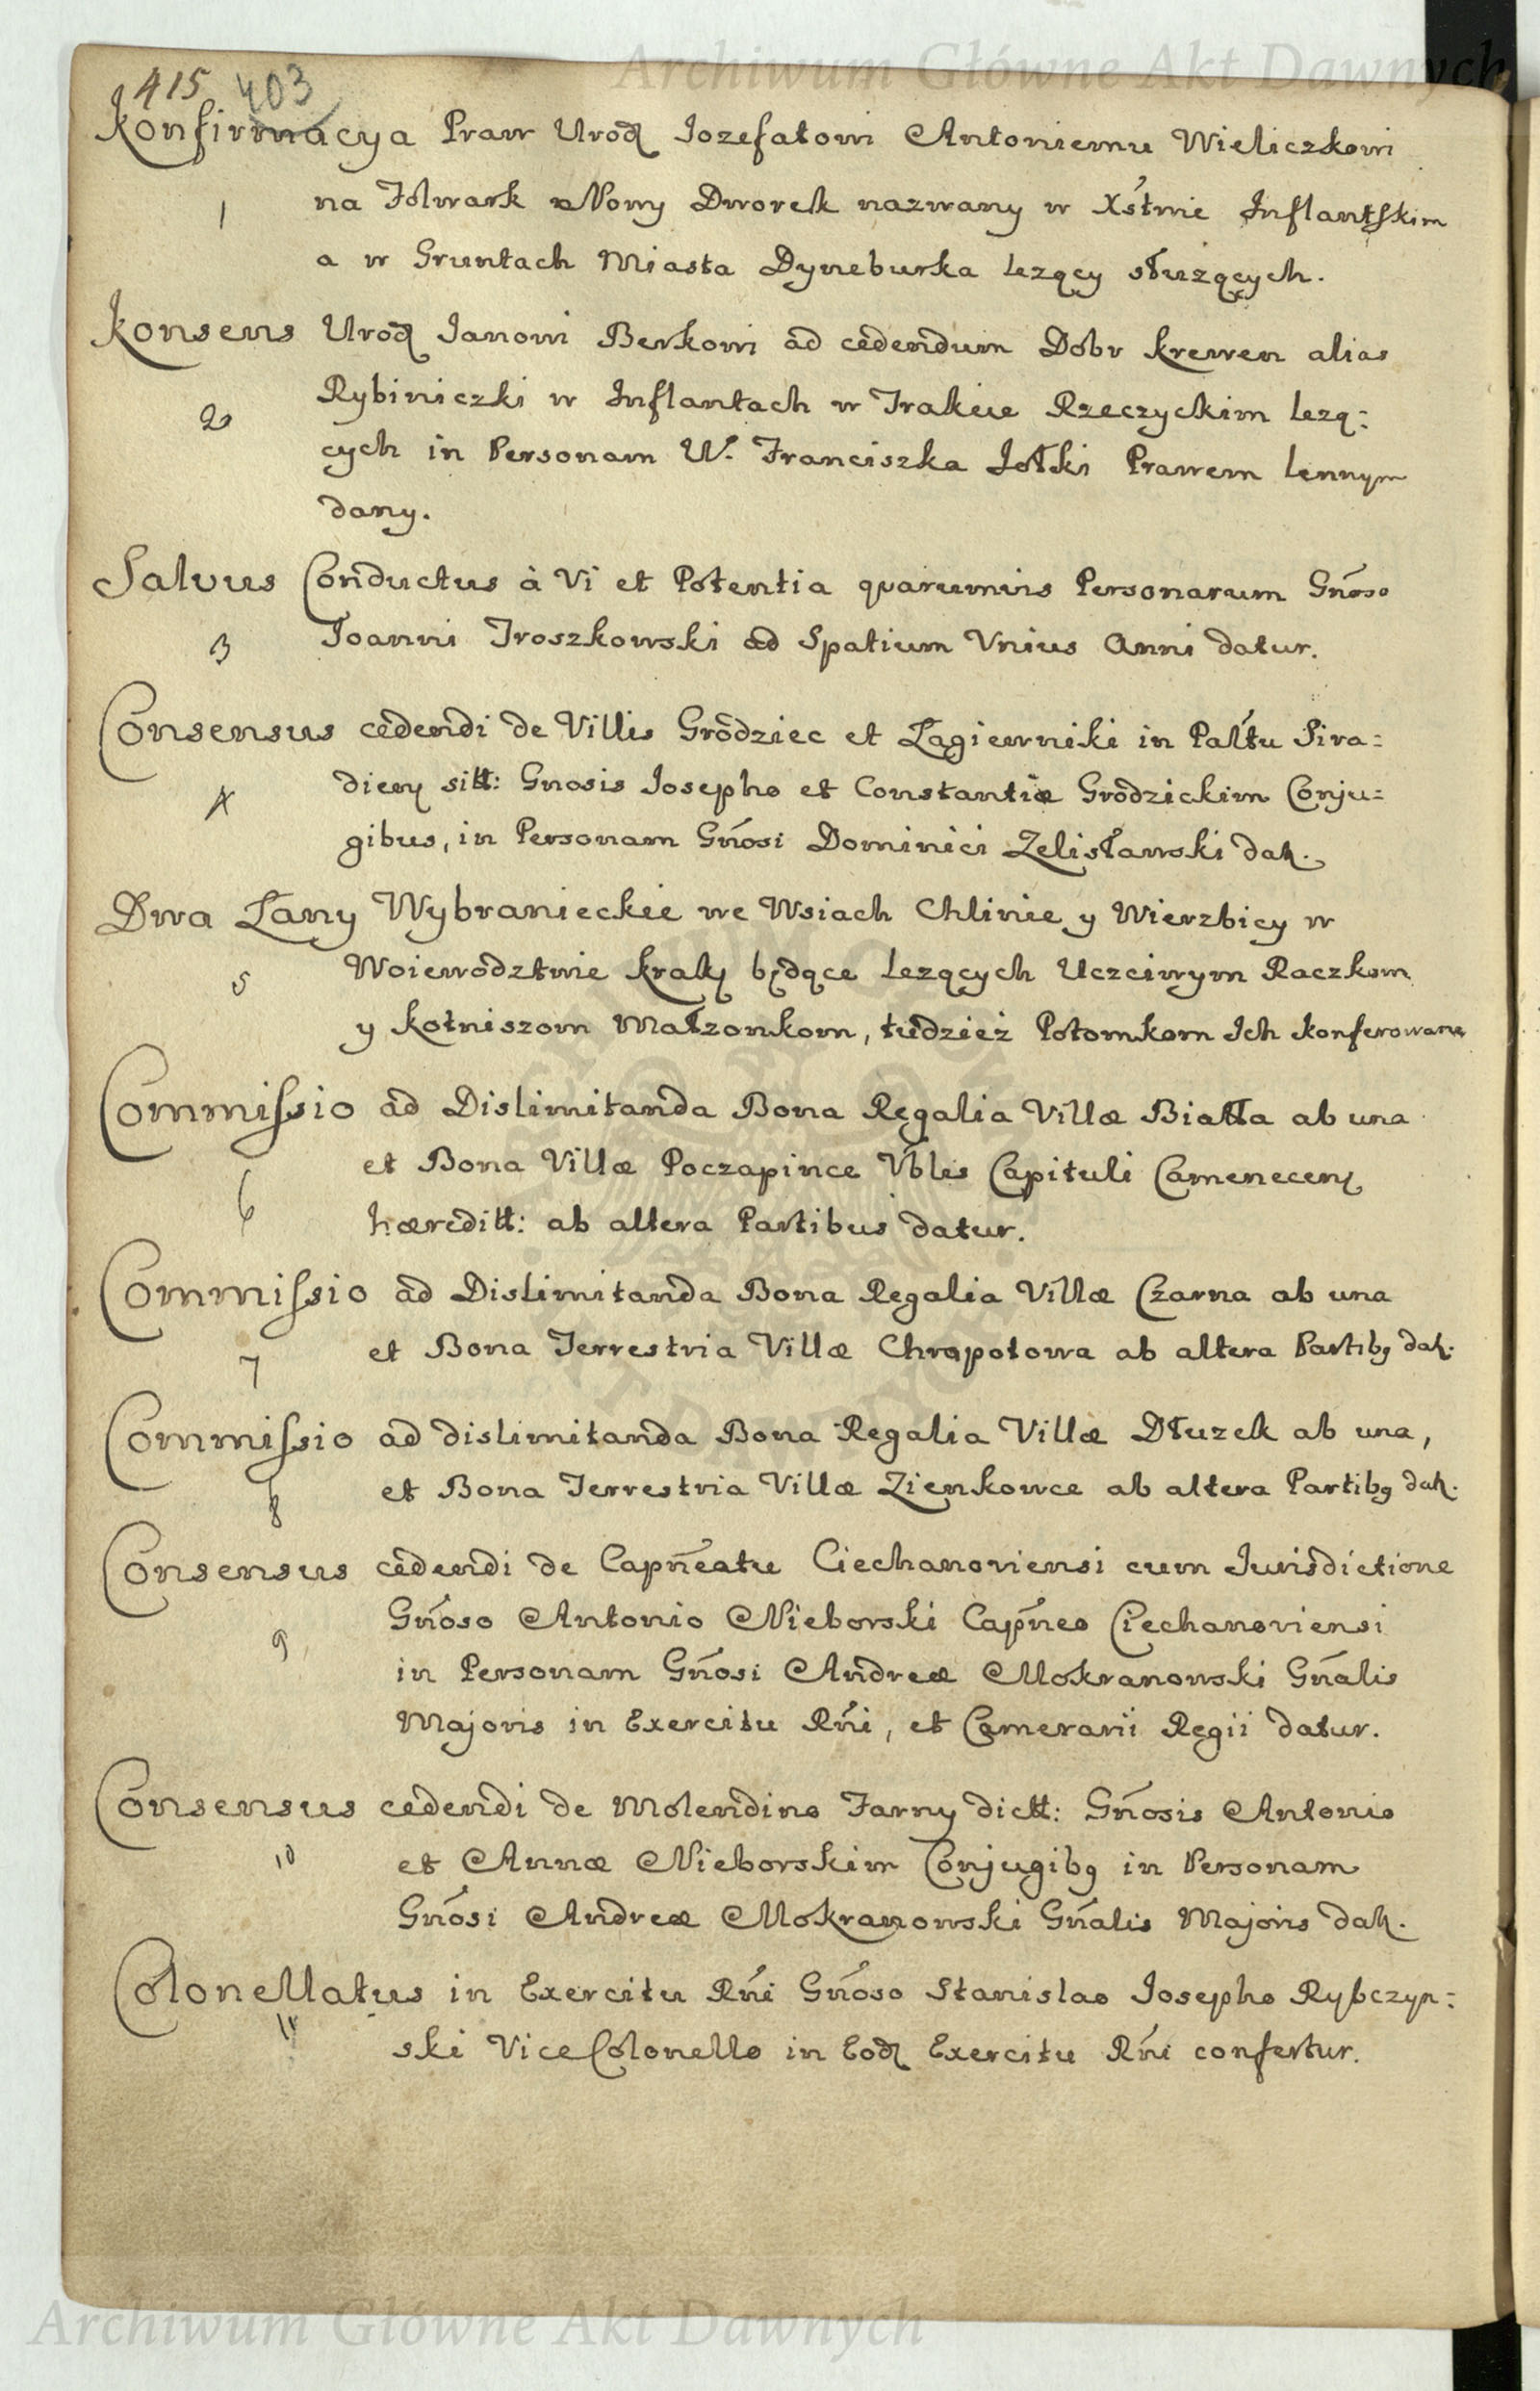 Archiwum Główne Akt Dawnych
415 403
Konfirmacya Praw Urod Iozefatowi Antoniemu Wieliczkowi
1
na Folwark Nowy Dworek nazwany w Xstwie Inflantskim
a w Gruntach Miasta Dyneburka lezący służących.
Konsens Urod Janowi Berkowi ad cedendum Dobr Krewen alias
2
Rybiniczki w Inflantach w Trakcie Rzeczyckim lezą:
cych in Personam W. Franciszka Prawem lennym
dany.
Salvus Conductus à Vi et Potentia quarumvis Personarum Gnoso
3
Joanni Troszkowski ad Spatium Unius Anni datur.
Consensus cedendi de Villis Grodziec et Łagiewniki in Paltu Sira=
4
dien sitt: Gnosis Josepho et Constantiæ Grodzickim Conju=
gibus, in Personam Gnosi Dominici Zelisławski dat.
Dwa Łany Wybranieckie we Wsiach Chlinie y Wierzbicy w
5
Woiewodztwie Krak będące lezących Uczciwym Raczkom
y Kotniszom Małzonkom, tudzież Potomkom Ich konferowane
Commissio ad Dislimitanda Bona Regalia Villæ Białła ab una
6
et Bona Villæ Poczapince Vblis Capituli Camenecen
hæreditt: ab altera Partibus datur.
Commissio ad Dislimitanda Bona Regalia Villæ Czarna ab una
7
et Bona Terrestria Villæ Chropotowa ab altera Partibq dat.
Commissio ad dislimitanda Bona Regalia Villæ Dłuzek ab una,
8
et Bona Terrestria Villæ Zienkowce ab altera Partibq dat.
Consensus cedendi de Capneatu Ciechanoviensi cum Jurisdictione
9
Gnoso Antonio Nieborski Capneo Ciechanoviensi
in Personam Gnosi Andreæ Mokranowski Gnalis
Majoris in Exercitu Rni, et Camerarii Regii datur.
Consensus cedendi de Molendino Farny dictt: Gnosis Antonio
10
et Annæ Nieborskim Conjugibq in Personam
Gnosi Andreæ Mokranowski Gnalis Majoris dat.
Colonellatus in Exercitu Rni Gnoso Stanislao Josepho Rybczyn:
11
ski ViceColonello in Eod Exercitu Rni confertur.
Archiwum Główne Akt Dawnych